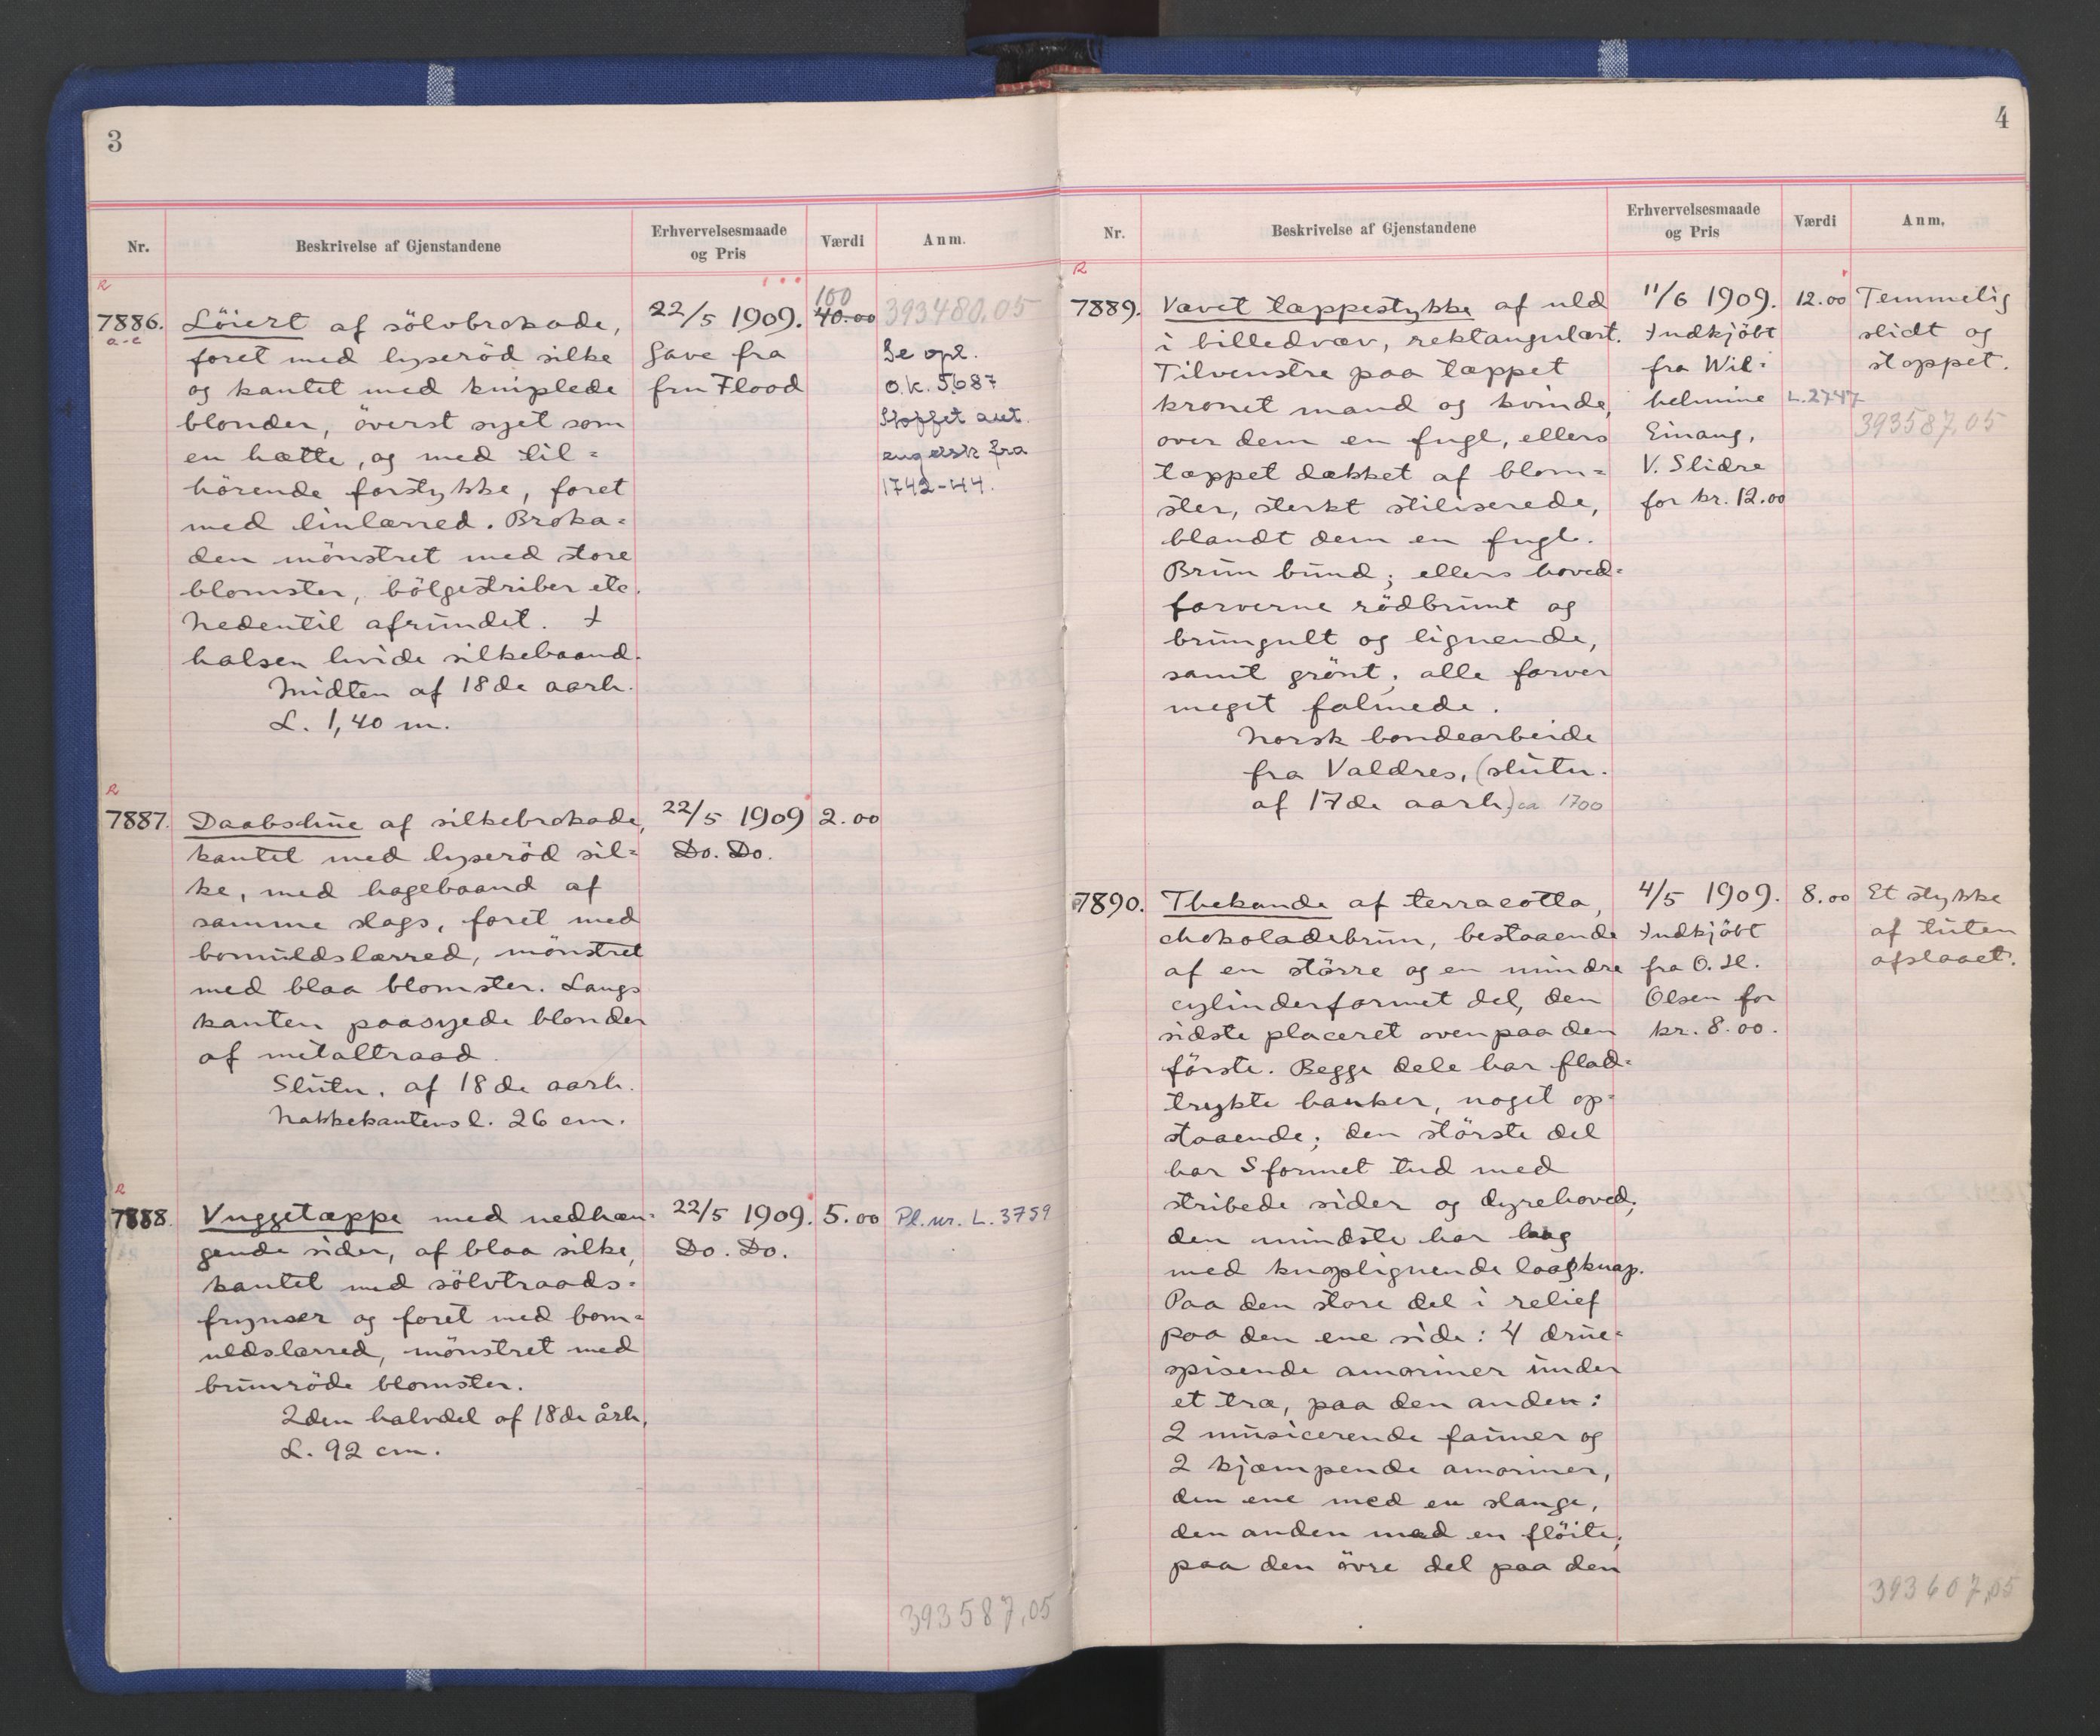 3
Nr.
Beskrivelse af Gjenstandene
Erhvervelsesmaade
og Pris
Værdi
Anm.
R
7886.
a-c
Löiert af sölvbrokade,
foret med lyseröd silke
og kantet med kniplede
blonder, överst syet som
en hætte, og med til=
hörende forstykke, foret
med linlærred. Broka=
den mönstret med store
blomster, bölgestriber etc.
Nedentil afrundet. I
halsen hvide silkebaand.
Midten af 18de aarh.
L. 1,40 m.
22/5 1909.
Gave fra
fru Flood
100
40.00
393480.05
Se opl.
O.K. 5687
Stoffet ant.
engelsk fra
1742-44.
R
7887.
Daabslue af silkebrokade,
kantet med lyseröd sil=
ke, med hagebaand af
samme slags, foret med
bomuldslærred, mönstret
med blaa blomster. Langs
kanten paasyede blonder
af metaltraad.
Slutn. af 18de aarh.
Nakkekantens l. 26 cm.
22/5 1909
Do. Do.
2.00
R
7888.
Vuggetæppe med nedhæn=
gende sider, af blaa silke,
kantet med sölvtraads=
frynser og foret med bom=
uldslærred, mönstret med
brunröde blomster.
2den halvdel af 18de årh.
L. 92 cm.
22/5 1909.
Do. Do.
5.00
Pl. nr. L. 3759
393587,05
4
Nr.
Beskrivelse af Gjenstandene
Erhvervelsesmaade
og Pris
Værdi
Anm.
R
7889.
Vævet tæppestykke af uld
i billedvæv, rektangulært.
Tilvenstre paa tæppet
kronet mand og kvinde,
over dem en fugl, ellers
tæppet dækket af blom=
ster, sterkt stiliserede,
blandt dem en fugl.
Brun bund; ellers hoved=
farverne rödbrunt og
brungult og lignende,
samt grönt; alle farver
meget falmede.
Norsk bondearbeide
fra Valdres, (slutn.
af 17de aarh.) ca 1700
11/6 1909.
Indkjöbt
fra Wil=
helmine
Einang,
V. Slidre
for kr. 12.00
12.00
L.2747
Temmelig
slidt og
stoppet.
393587,05
7890.
Thekande af terracotta,
chokoladebrun, bestaaende
af en större og en mindre
cylinderformet del, den
sidste placeret ovenpaa den
förste. Begge dele har flad=
trykte hanker, noget op=
staaende; den störste del
har S formet tud med
stribede sider og dyrehoved;
den mindste har laag
med knoplignende laagknap.
Paa den store del i relief
paa den ene side: 4 drue=
spisende amoriner under
et træ, paa den anden:
2 musicerende fauner og
2 kjæmpende amoriner,
den ene med en slange,
den anden med en flöite;
paa den övre del paa den
4/5 1909.
Indkjöbt
fra O. H.
Olsen for
kr. 8.00.
8.00
Et stykke
af tuten
afslaaet.
393607,05